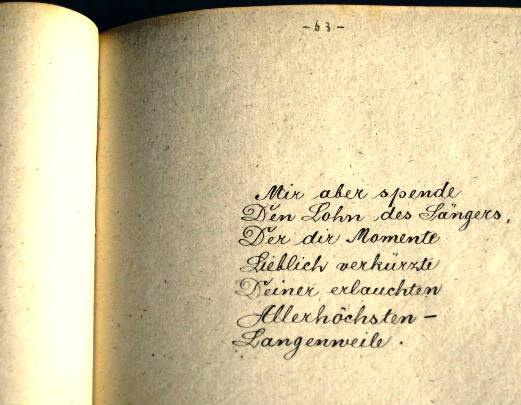 - 63 -
Mir aber spende
Den Lohn des Sängers,
Der dir Momente
Lieblich verkürzte
Deiner erlauchten
Allerhöchsten -
Langenweile.